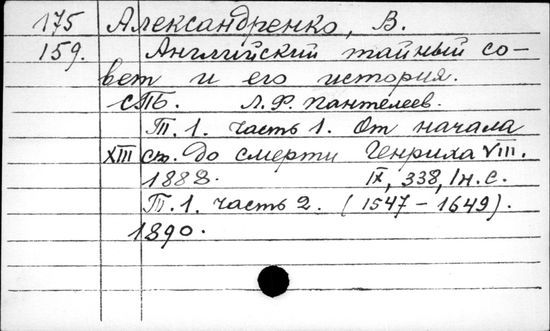 175 Александренко, В.
159. Английский тайный со-
вет и его история.
СПБ. Л.Ф. Пантелеев.
Т.1. часть 1. От начала
XIII ст. до смерти Генриха VIII.
1888. IX, 338, 1н.с.
Т.1. часть 2. (1547-1649).
1890.